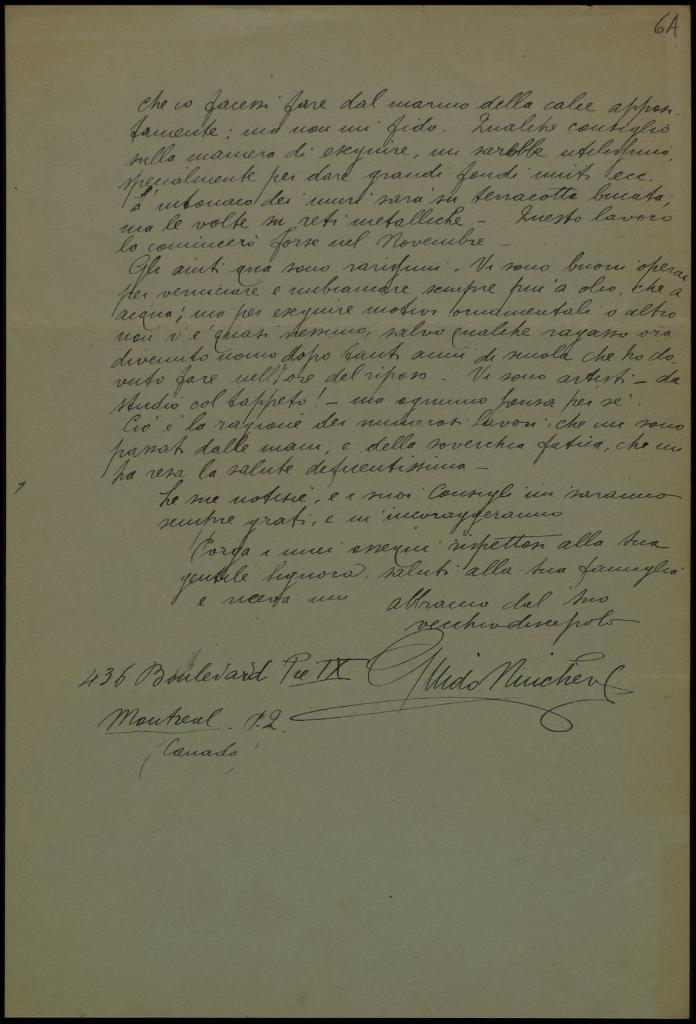 6A
che io facessi fare dal marmo della calce apposi-
tamente; ma non mi fido. Qualche consiglio
sulla maniera di eseguire, mi sarebbe utilissimo,
specialmente per dare grandi fondi uniti ecc.
L'intonaco dei muri sarà su terracotta bucata,
ma le volte su reti metalliche – Questo lavoro
lo comincerò forse nel Novembre –
Gli aiuti qua sono rarissimi. Vi sono buoni operai
per verniciare e imbiancare sempre però a olio, che a
acqua; ma per eseguire motivi ornamentali o altro
non v'è quasi nessuno, salvo qualche ragazzo ora
divenuto uomo dopo tanti anni di scuola che ho do-
vuto fare nell'ore del riposo. Vi sono artisti – da
studio col tappeto! – ma ognuno pensa per sé.
Ciò è la ragione dei numerosi lavori, che mi sono
passati dalle mani, e della soverchia fatica, che mi
ha resa la salute deficentissima –
Le sue notizie, e i suoi consigli mi saranno
sempre grati, e m'incoraggeranno
Porga i miei ossequi rispettosi alla sua
gentile Signora, saluti alla sua famiglia
e riceva un abbraccio dal suo
vecchio discepolo
436 Boulevard Pie IX Guido Nincheri
Montreal. P.Q.
(Canada)